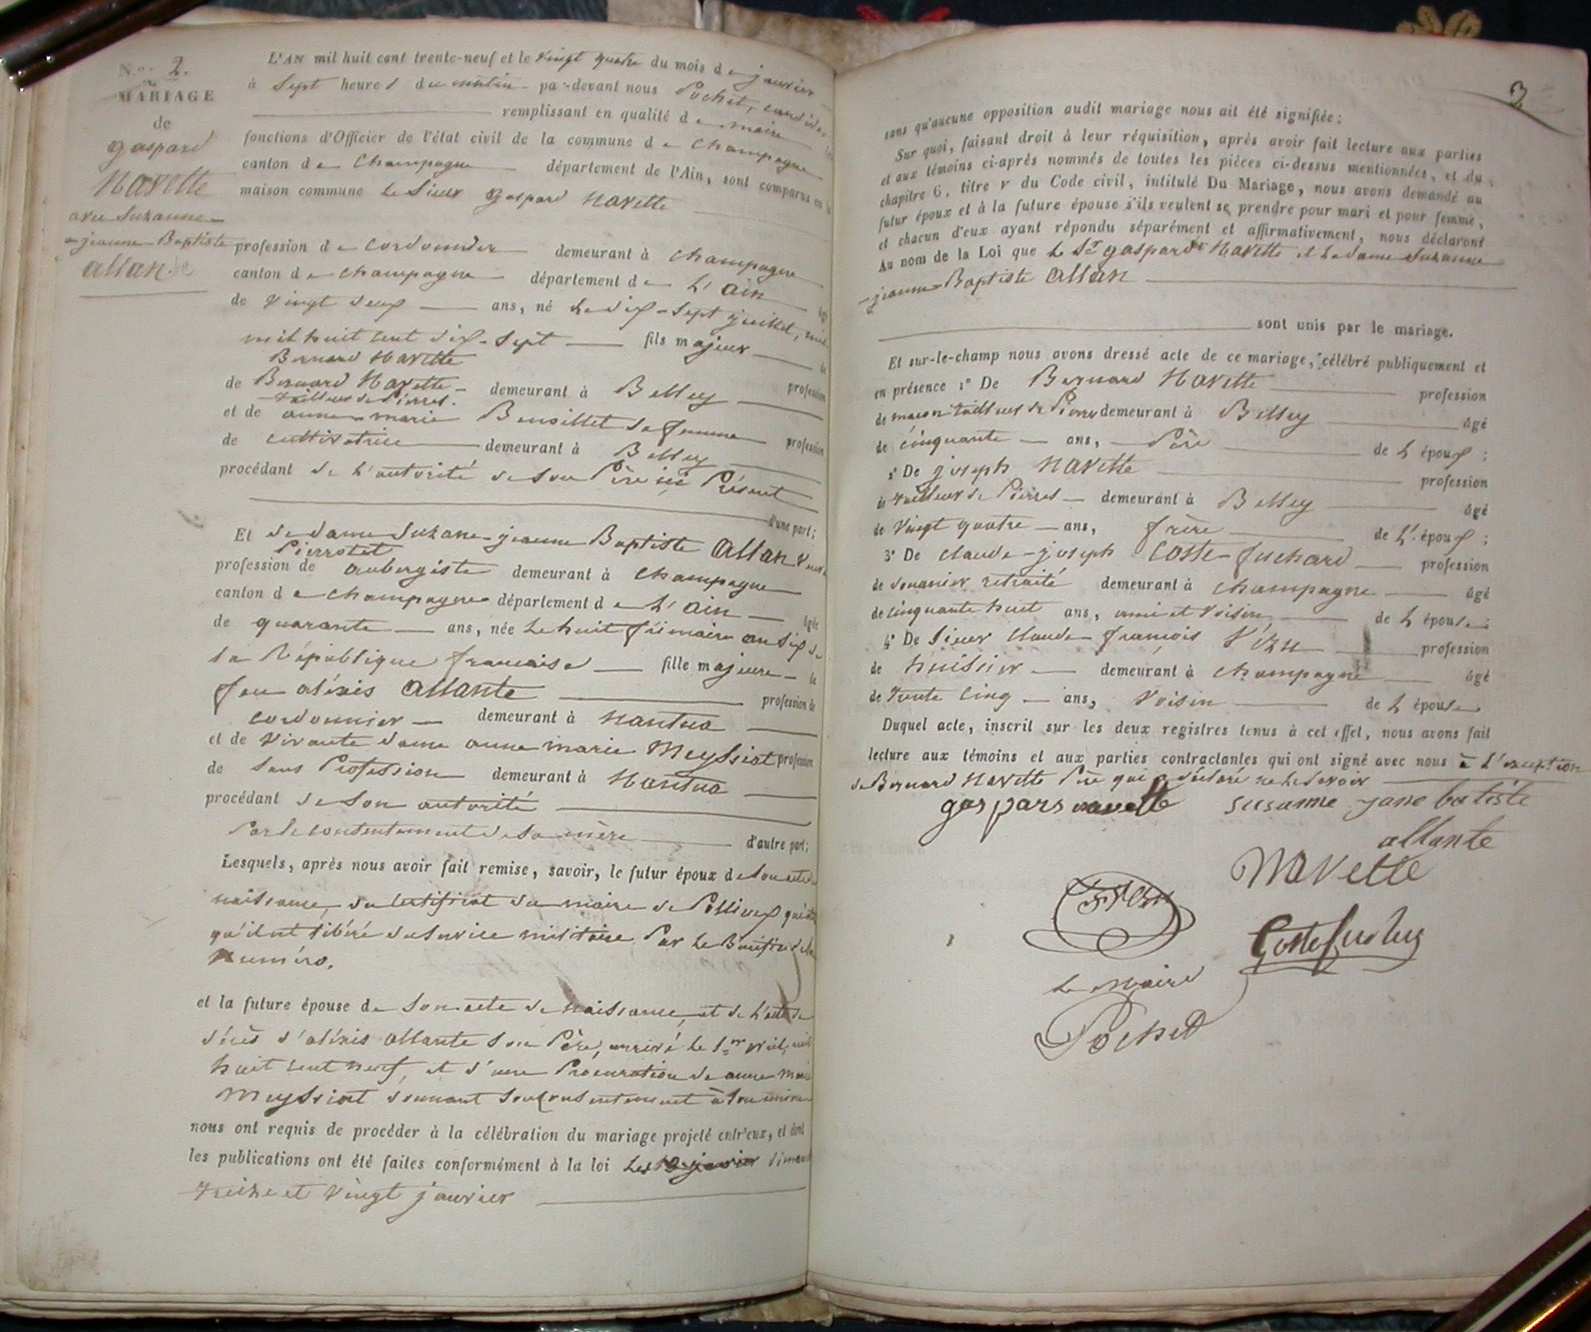 N.o 2.
MARIAGE
de
gaspard
Navette
avec Suzanne
jeanne Baptiste
allante
L'AN mil huit cent trente-neuf et le vingt quatre du mois de janvier
à Sept heures du matin par-devant nous Pochet,
remplissant en qualité de maire les
fonctions d'Officier de l'état civil de la commune de Champagne
canton de Champagne département de l'Ain, sont comparus en la
maison commune le Sieur gaspard Navette
profession de cordonnier demeurant à Champagne
canton de Champagne département de L'ain âgé
de vingt deux ans, né le dix-Sept juillet, mil
mil huit cent dix-Sept fils majeur de
Bernard Navette
de Bernard Navette demeurant à Belley profession
tailleur de Pierres.
et de anne marie sa femme profession
de cultivatrice demeurant à Belley
procédant de l'autorité de son Père ici Présent
d'une part;
Et de dame Suzane jeanne Baptiste Allan veuve
Pierrotet
profession de aubergiste demeurant à Champagne
canton de Champagne département de L'ain âgée
de quarante ans, née le huit frimaire an Six de
la République française fille majeure de
feu aléxis Allante profession de
cordonnier demeurant à Nantua
et de vivante dame anne marie Meyssiat profession
de Sans Profession demeurant à Nantua
procédant de Son autorité
Par le consentement de Sa mère d'autre part;
Lesquels, après nous avoir fait remise, savoir, le futur époux de Son acte de
naissance, du certificat du maire de Pollieux
qu'il est libéré du Service militaire Par le Bénéfice de Son
Numéro.
et la future épouse de Son acte de naissance, et de l'acte de
décès d'aléxis allante Son Père, arrivé le 1er mil
huit cent neuf, et d'une Procuration de anne Marie
Meyssiat donnant Son consentement à Son union
nous ont requis de procéder à la célébration du mariage projeté entr'eux, et dont
les publications ont été faites conformément à la loi les janvier
treize et vingt janvier
3
sans qu'aucune opposition audit mariage nous ait été signifiée;
Sur quoi, faisant droit à leur réquisition, après avoir fait lecture aux parties
et aux témoins ci-après nommés de toutes les pièces ci-dessus mentionnées, et du
chapitre 6, titre v du Code civil, intitulé Du Mariage, nous avons demandé au
futur époux et à la future épouse s'ils veulent se prendre pour mari et pour femme,
et chacun d'eux ayant répondu séparément et affirmativement, nous déclarons
Au nom de la Loi que le Sr gaspard Navette et la dame Suzanne
jeanne Baptiste Allan
sont unis par le mariage.
Et sur-le-champ nous avons dressé acte de ce mariage, célébré publiquement et
en présence 1° De Bernard Navette profession
de maçon tailleur de Pierres demeurant à Belley âgé
de cinquante ans, Père de L'époux;
2° De joseph Navette profession
de tailleur de Pierres demeurant à Belley âgé
de vingt quatre ans, frère de L'époux;
3° De claude joseph Coste-fuchard profession
de douanier retraité demeurant à Champagne âgé
de cinquante huit ans, ami et voisin de L'épouse;
4° De Sieur claude françois profession
de huissier demeurant à Champagne âgé
de trente cinq ans, voisin de L'épouse
Duquel acte, inscrit sur les deux registres tenus à cet effet, nous avons fait
lecture aux témoins et aux parties contractantes qui ont signé avec nous à l'exception
de Bernard Navette Père qui a déclaré ne le Savoir
gaspars navette susanne jane batiste
allante
Navette
Costefuchar
le Maire
Pochet